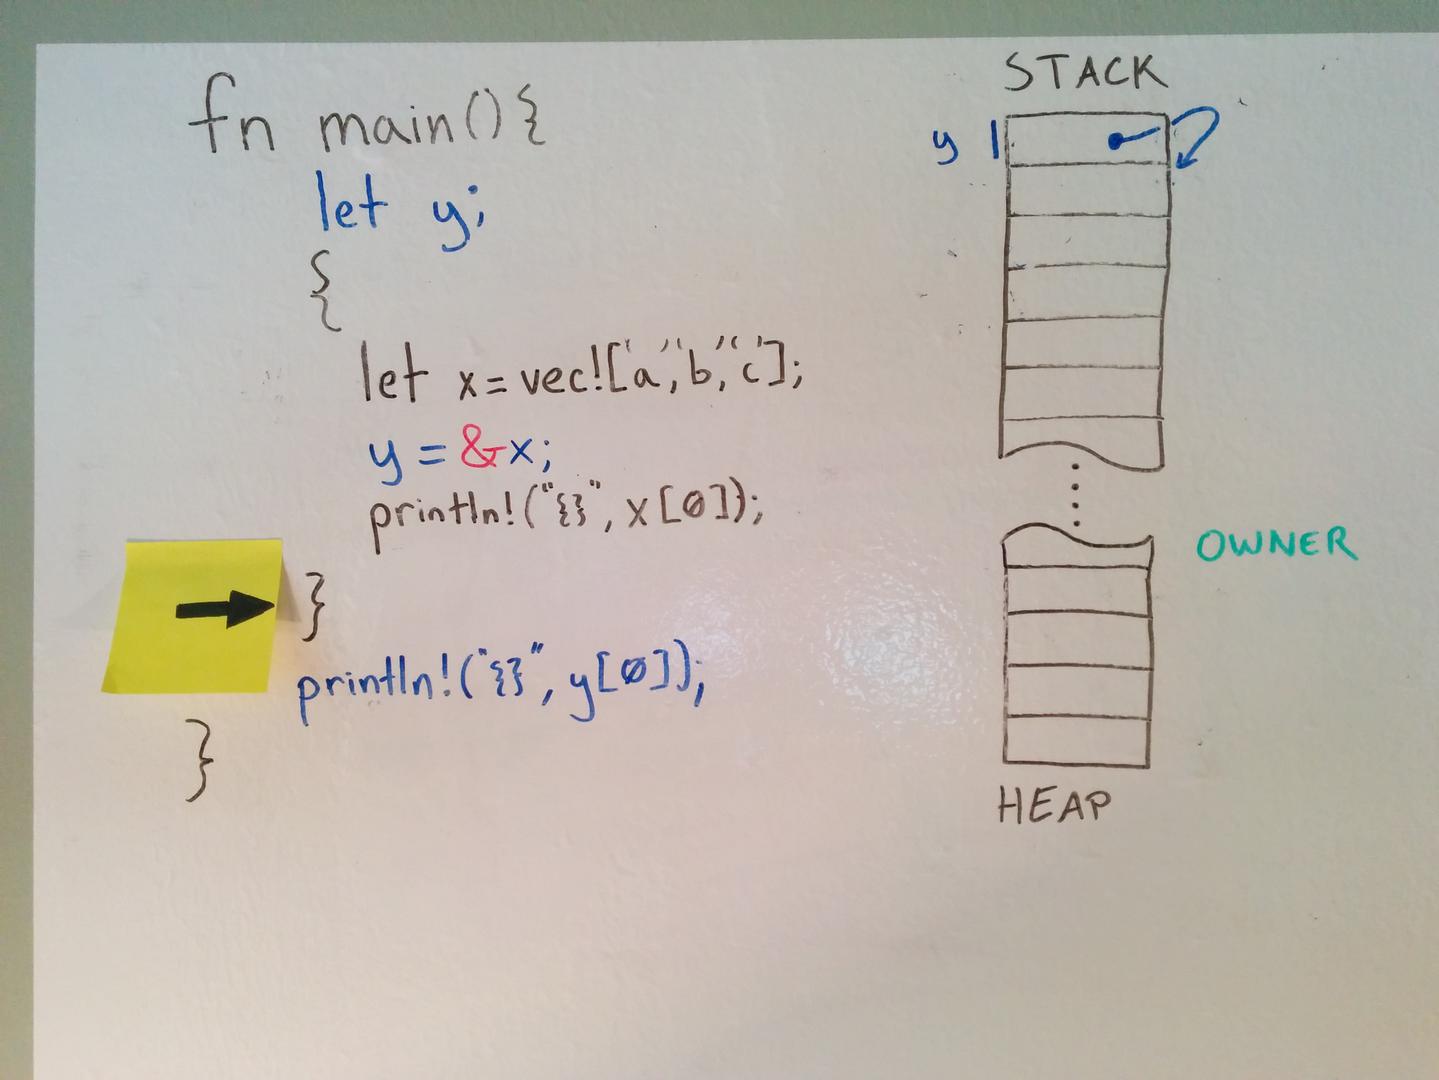 fn main(){
let y;
{
let x=vec!['a','b','c'];
y = &x;
println!("{}", x[0]);
}
println!("{}", y[0]);
}
STACK
y
OWNER
HEAP